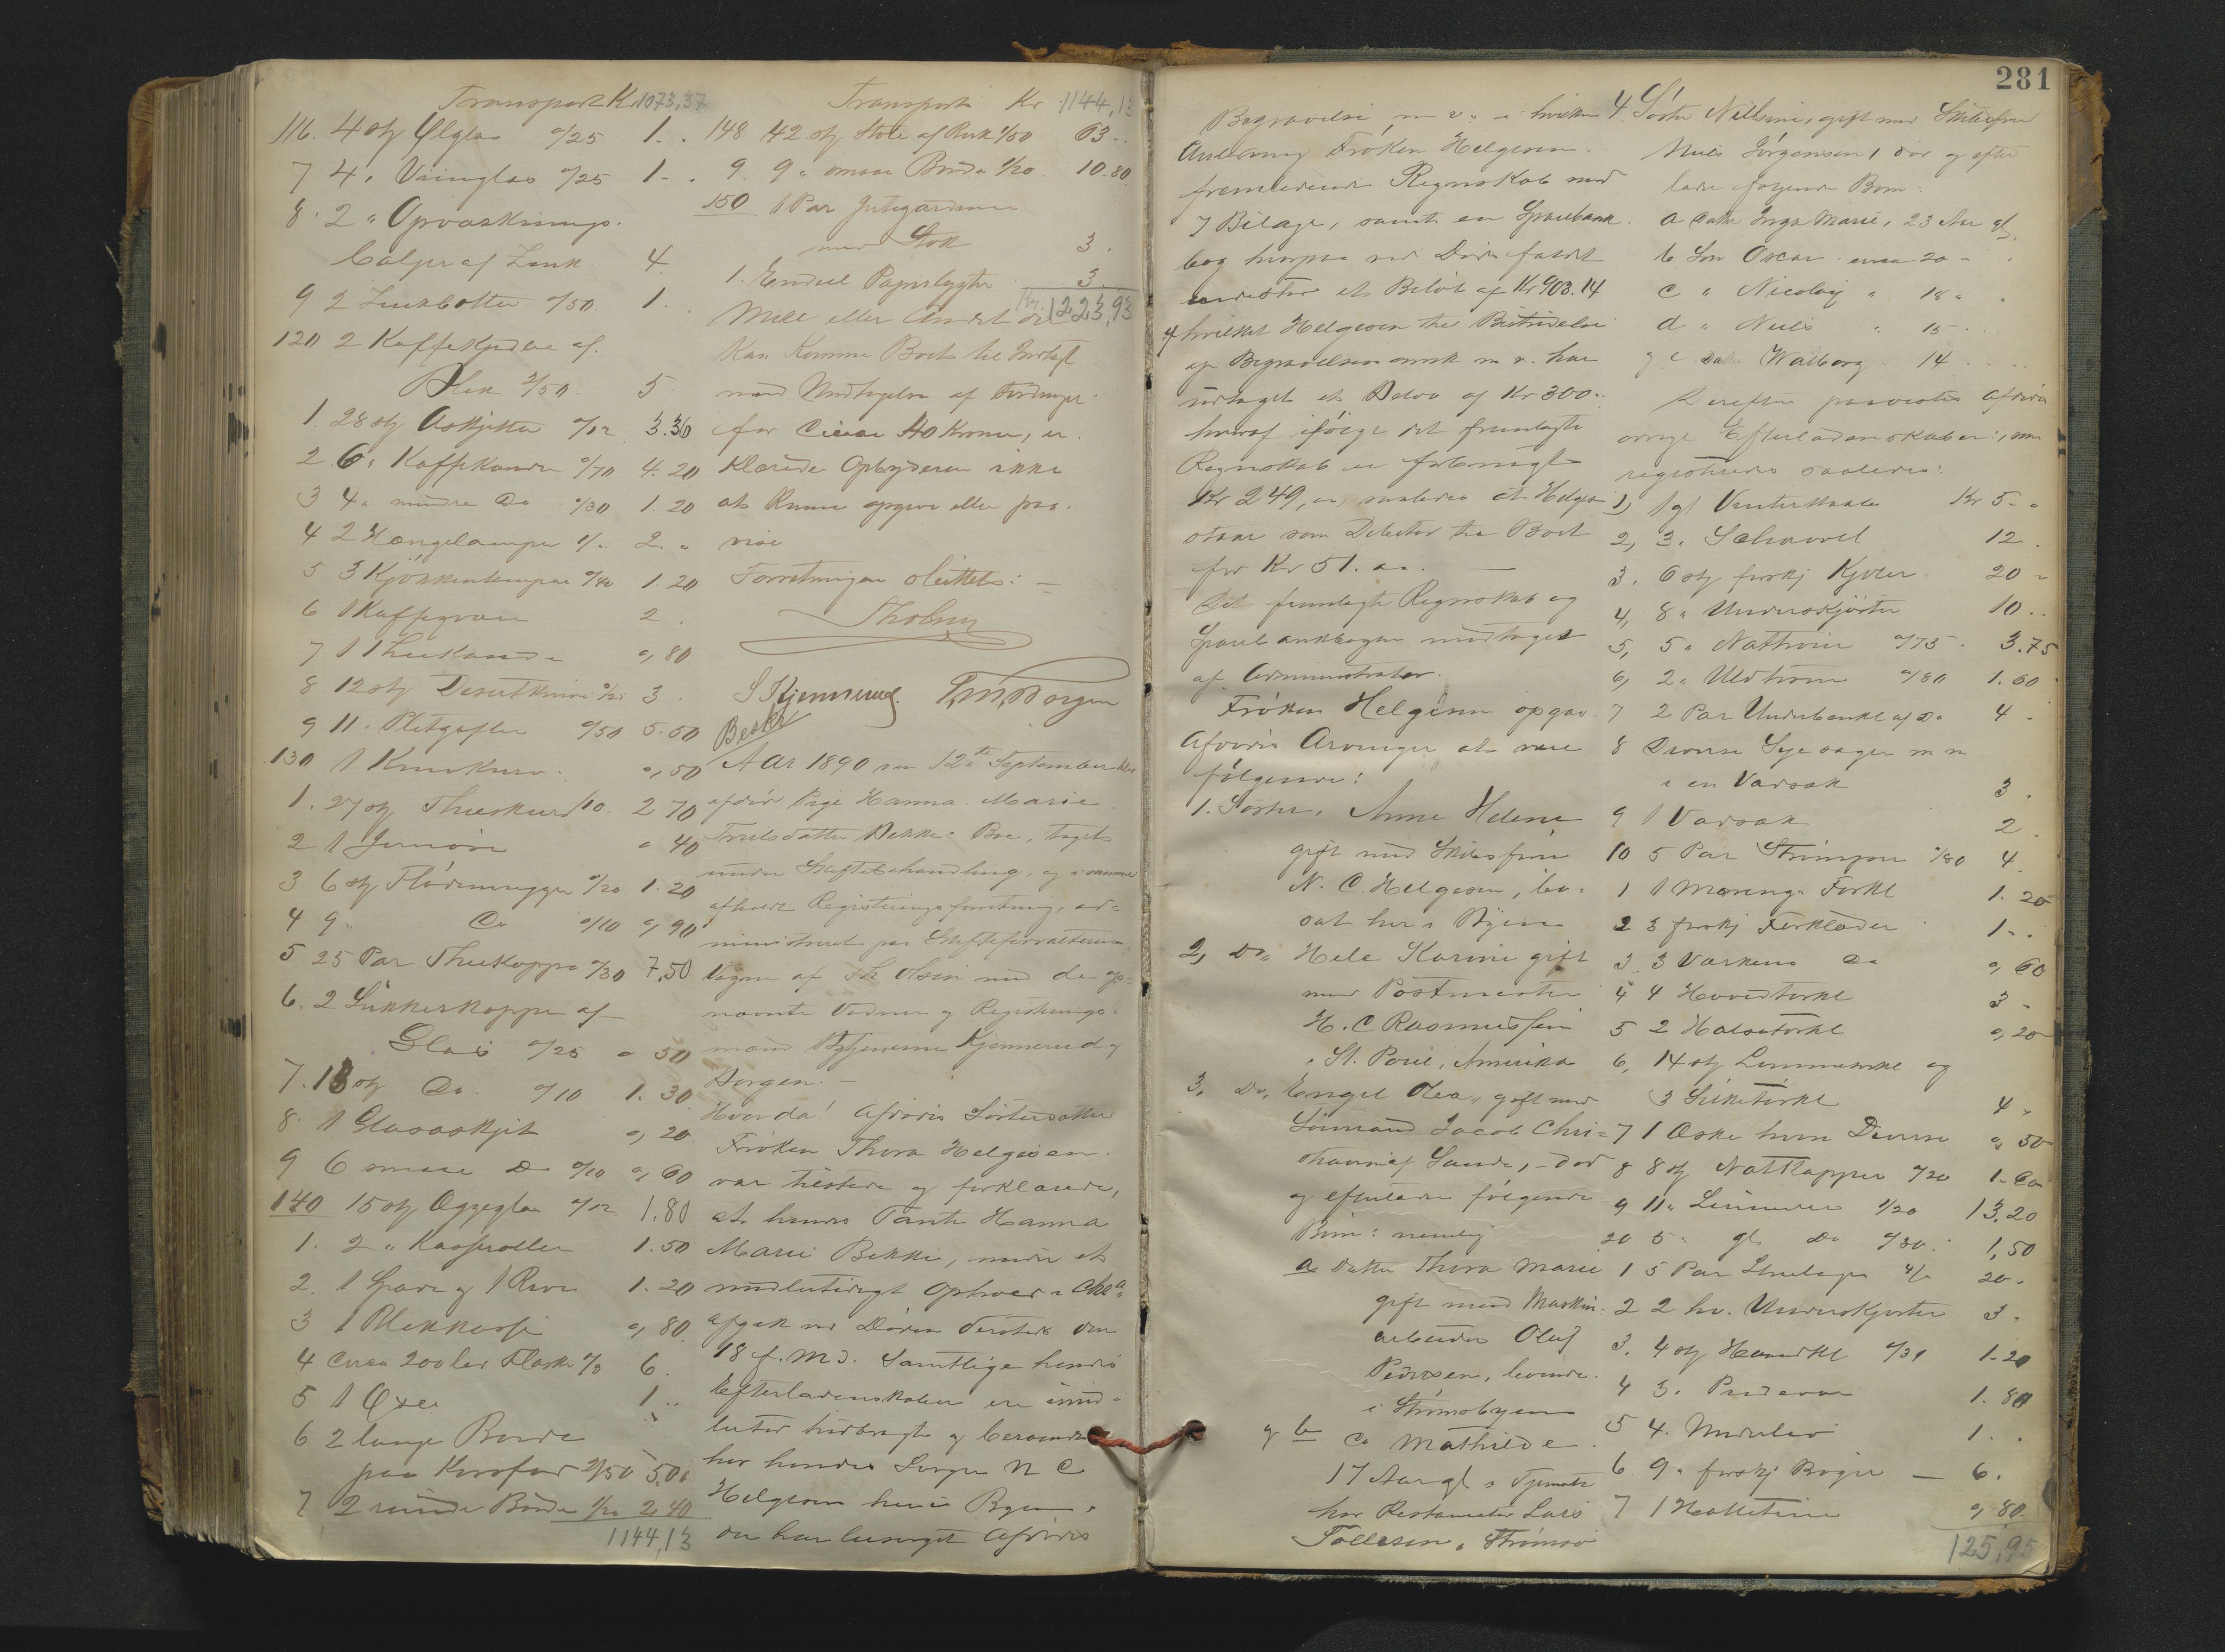 Transport Kr 1073,37
116. 4 stz Ølglas a/25 1. .
7 4 " Vinglas a/25 1. .
8. 2 " Opvasknings-
baljer af Zink 4.
9 2 Zinkbøtter a/50 1.
120 2 Kaffekjedler af
Blik 2/50. 5
1. 28 stz Askjetter a/12 3.36
2 6 " Kaffekander a/70 4.20
3 4 " mindre Do a/30 1.20
4 2 Hængelamper 1/- 2. "
5 3 Kjøkkenlamper a/40 1.20
6 1 Kaffekvern 2.
7 1 Theekande 0,80
8 12 stz Desertknive a/25 3.
9 11 " Pletgafler a/50 5.50
130 1 Knivkurv 0,50
1. 27 stz Theeskeer /10. 2.70
2 1 " 40
3 6 stz Flødemugger a/20 1.20
4 9 " Do a/10 0,90
5 25 Par Theekopper a/30 7,50
6. 2 Sukkerkopper af
Glas a/25 " 50
7. 13 stz Do. a/10 1.30
8. 1 Glasaskjet 0,20
9 6 smaae Do a/10 0,60
140 15 stz Æggeglas a/12 1.80
1. 2 " Kasseroller 1.50
2. 1 Spade og 1 Rive 1.20
3 1 Blikkasse 0,80
4 circa 200 los Flaske a/3 6.
5 1 Øxe 1..
6 2 lange Borde
paa Korsfod 2/50 5.00
7 2 runde Borde 1/20 2,40
1144,13
Transport Kr 1144,13
148 42 stz Stole af Rusk 1/50 63..
9. 9 " smaae Borde 1/20. 10.80
150 1 Par Jutegardiner
med Stok 3.
1. Endeel Papirlygter 3.
Kr. 1223,93
Mere eller Andet der
kan komme Boet til Indtægt
med Undtagelse af Fordringer
for circa 40 Kroner, er-
klærede Opbyderen ikke
at kunne opgive eller paa-
vise
Forretningen sluttet: -
Th Olsen
S Kjennerud. Borgen
Beskr
Aar 1890 den 12te September blev
afdøde Pige Hanna Marie
Truilsdatter Bekke's Bo, taget
under Skiftebehandling, og i samme
afholdt Registreringsforretning, ad-
ministreret paa Skifteforvalterens
Vegne af Th. Olsen med de op-
nævnte Vidner og Registrerings-
mænd Kjennerud og
Borgen. -
Hvorda! Afdødes Søsterdatter
Frøken Thora Helgesen
var tilstede og forklarede,
at hendes Tante Hanna
Marie Bekke, under et
midlertidigt Ophold i
afgik ved Døden dersteds den
18 f. Md. Samtlige hendes
Efterladenskaber ere imid-
lertid hidbragte og beroende
hos hendes Svoger N C
Helgesen her i Byen,
der har besørget Afdødes
281
Begravelse m v. i hvilken
Anledning Frøken Helgesen
fremlagde Regnskab med
7 Bilage, samt en Sparebank-
bog hvorpaa ved Dødsfaldet
indestod et Beløb af Kr 903.14
af hvilket Helgesen til Bestridelse
af Begravelsesomk m v. har
udtaget et Beløb af Kr 300.
hvoraf ifølge det fremlagte
Regnskab er forbrugt
Kr 249, saaledes at Helgesen
staar som Debitor til Boet
for Kr 51.
Det fremlagte Regnskab og
Sparebankbogen modtoges
af Administrator.
Frøken Helgesen opgav
Afdødes Arvinger at være
følgende:
1. Søster, Anne Helene
gift med Skibsfører
N. C. Helgesen, bo-
sat her i Byen
2, Do, Hele Karine gift
med Postmester
H. C Rasmussen
i St. Poul, Amerika
3. Do, Engel Olea, gift med
Sømand Jacob Chri-
Sande, - død
og efterlader følgende
Børn: nemlig
a Datter Thora Marie
gift med Maskin-
arbeider Oluf
Pedersen, boende
i Strømsbyen
og b Do Mathilde
17 Aar gl. i Tjeneste
hos Restauratør Lars
Tollefsen, Strømsø
4. Søster Nilsine, gift med Skibsfører
Niels Jørgensen, død og efter-
lader følgende Børn:
a Datter Inga Marie, 23 Aar gl.
b Søn Oscar circa 20 "
c " Nicolay " 18 "
d " Niels " 15
og e Datter Walborg 14
Derefter paavistes Afdødes
øvrige Efterladenskaber, som
registreredes saaledes:
1) 1 gl Vinterkaabe Kr 5. "
2, 3. Schavvel 12.
3. 6 stz forskj Kjoler 20 "
4, 8 " Underskjørter 10..
5, 5 " Nattrøier a/75. 3.75
6, 2 " Uldtrøier a/80 1.60
7 2 Par Underbenkl af Do 4.
8 Diverse Sysager m m
i en Vadsæk 3.
9 1 Vadsæk 2.
10 5 Par Strømper a/80 4.
1 1 Mærings Forkl 1.20
2 3 forskj Forklæder 1..
3. 3 Værkens Do 0,60
4 4 Hovedtørkl 3.
5 2 Halstørkl 0,20
6, 14 stz Lommetørkl og
3 Silketørkl 4.
7 1 Æske hvori Diverse 0,50
8 8 stz Natkapper a/20 1.60
9 11 " Linnerder 1/20 13.20
20 5 " gl Do a/30. 1,50
1 5 Par Strielager 4/- 20.
2 2 hv. Underskjorter 3.
3. 4 stz Haandkl a/30 1.20
4 3. Pudevaar 1.80
5 4. Underliv 1..
6 9 " forskj Bøger — 6.
7 1 Hattetine 0,80.
125,95